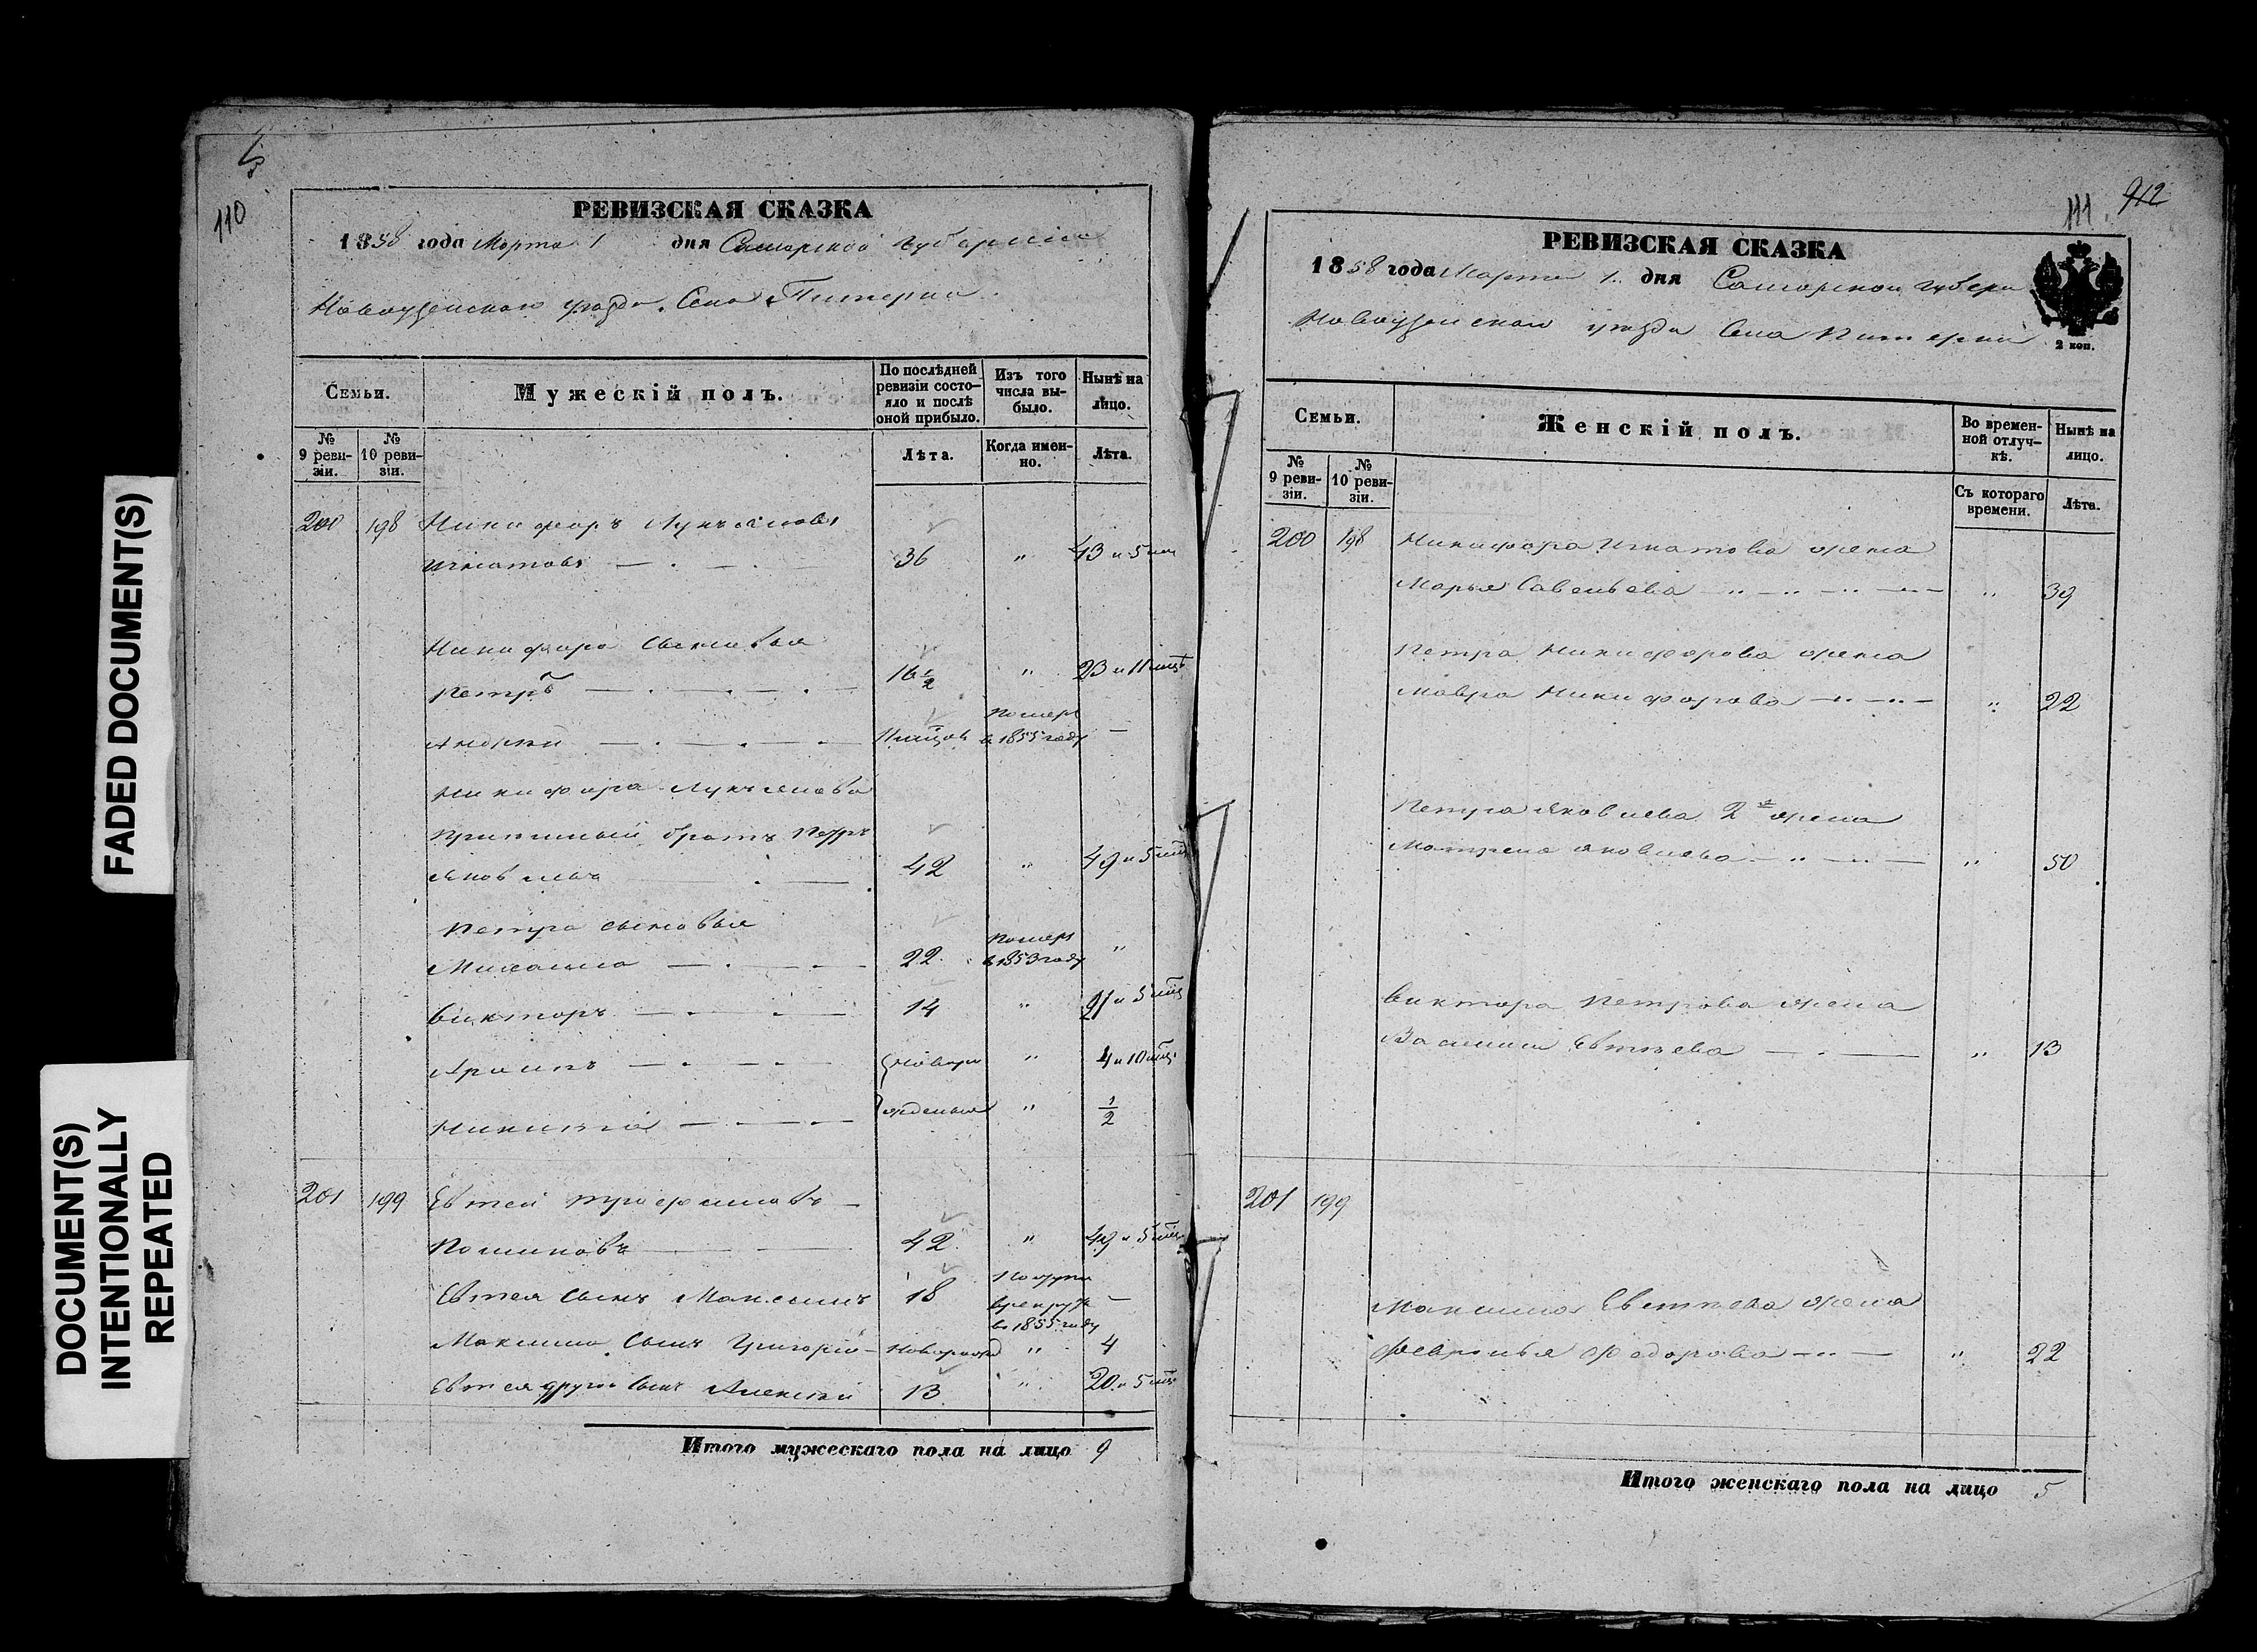 FADED DOCUMENT(S)
DOCUMENT(S)
INTENTIONALLY
REPEATED
110
РЕВИЗСКАЯ СКАЗКА
1858 года Марта 1 дня Самарской губернии
Новоузенскаго уезда. Села Питерки.
Семьи.
Мужескій полъ.
По послѣдней ревизіи состояло и послѣ оной прибыло.
Изъ того числа выбыло.
Нынѣ на лицо.
№ 9 ревизіи.
№ 10 ревизіи.
Лѣта.
Когда именно.
Лѣта.
200 198 Никифоръ Лукьяновъ
Игнатовъ 36 " 43 и 5 мц
Никифора сыновья
Петръ 16 1/2 " 23 и 11 мцъ
Андрей 11 мцов Померъ в 1855 году —
Никифора Лукьянова
братъ Петръ
Яковлевъ 42 " 49 и 5 мц
Петра сыновья
Михайла 22 Померъ в 1853 году "
Викторъ 14 " 21 и 5 мц
Архипъ Новоро " 4 и 10 мц
Никита жденныя " 1/2
201 199 Евтей Трофимовъ
42 " 49 и 5 мц
Евтея сынъ Максимъ 18 в 1855 году —
Максима сынъ Григорій Новорожд " 4
Евтея другой сынъ Алексей 13 " 20 и 5 мц
Итого мужескаго пола на лицо 9
111
912
РЕВИЗСКАЯ СКАЗКА
1858 года Марта 1 дня Самарской губерн
Новоузенскаго уезда Села Питерки
2 коп.
Семьи.
Женскій полъ.
Во временной отлучкѣ.
Нынѣ на лицо.
№ 9 ревизіи.
№ 10 ревизіи.
Съ котораго времени.
Лѣта.
200 198 Никифора Игнатова жена
Марья Савельева " 39
Петра Никифорова жена
Мавра Никифорова " 22
Петра Яковлева 2я жена
Матрена Яковлева " 50
Виктора Петрова жена
Василиса Евтеева " 13
201 199
Максима Евтеева жена
Февронья Федорова " 22
Итого женскаго пола на лицо 5